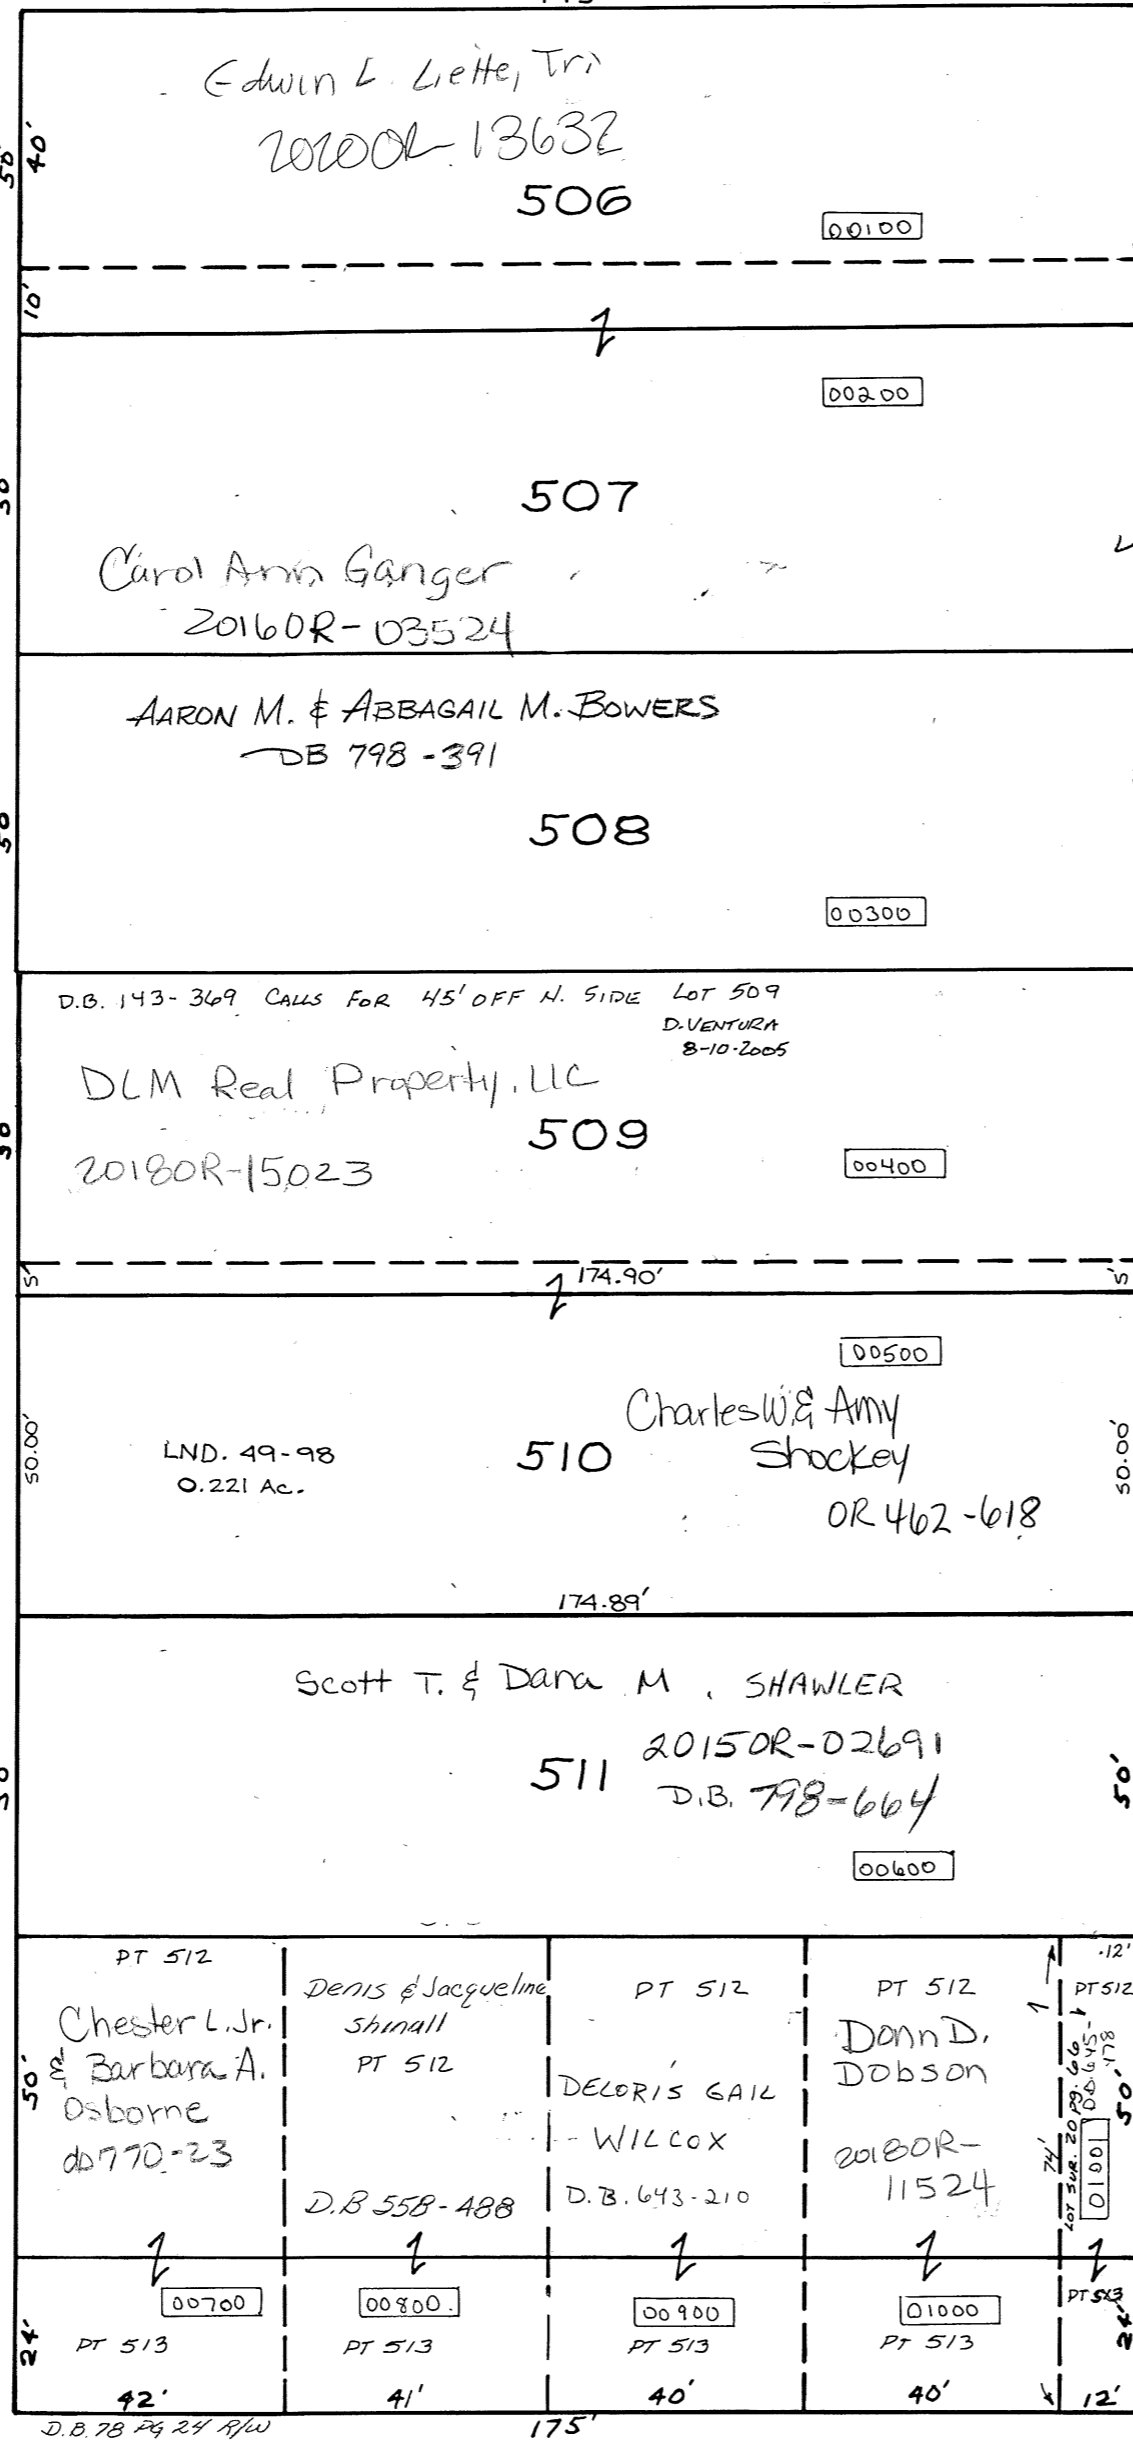 Edwin L. Liette, Tri
2020OR-13632
506
00100
50'
40'
10'
00200
507
Carol Ann Ganger
2016OR-03524
AARON M. & ABBAGAIL M. BOWERS
DB 798-391
508
50
00300
D.B. 143-369 CALLS FOR 45' OFF N. SIDE LOT 509
D. VENTURA
8-10-2005
DLM Real Property, LLC
509
2018OR-15023
00400
5'
174.90'
5'
00500
Charles W. & Amy
Shockey
50.00'
LND. 49-98
0.221 Ac.
510
50.00'
OR 462-618
174.89'
Scott T. & Dana M. SHAWLER
2015OR-02691
511
D.B. 798-664
50'
00600
PT 512
Chester L. Jr.
& Barbara A.
Osborne
db770-23
50'
Denis & Jacqueline
Shinall
PT 512
D.B 558-488
PT 512
DELORIS GAIL
WILCOX
D.B. 643-210
PT 512
Donn D.
Dobson
2018OR-
11524
74'
12'
PT 512
LOT SUR. 20 PG. 66
D.B. 645-
178
01001
50'
00700
00800
00900
01000
PT 513
24'
PT 513
PT 513
PT 513
PT 513
24'
42'
41'
40'
40'
12'
D.B. 78 PG 24 R/W
175'